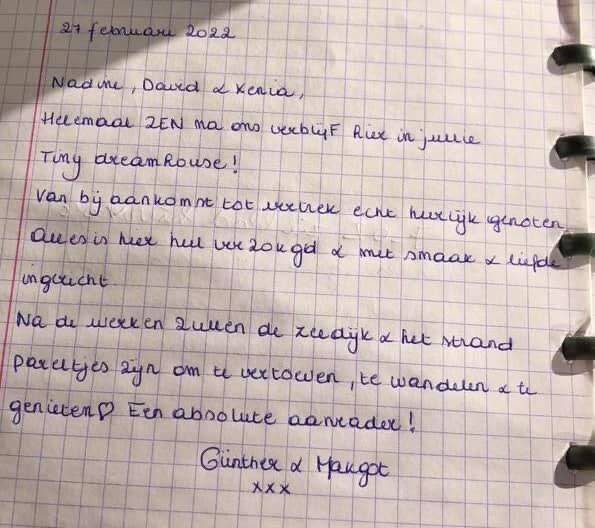 27 februari 2022
Nadine, David & Xenia,
Helemaal ZEN na ons verblijf hier in jullie
Tiny dreamhouse!
Van bij aankomst tot vertrek echt heerlijk genoten.
Alles is hier heel verzorgd & met smaak & liefde
ingericht
Na de werken zullen de zeedijk & het strand
pareltjes zijn om te vertoeven, te wandelen & te
genieten♡ Een absolute aanrader!
Günther & Margot
xxx